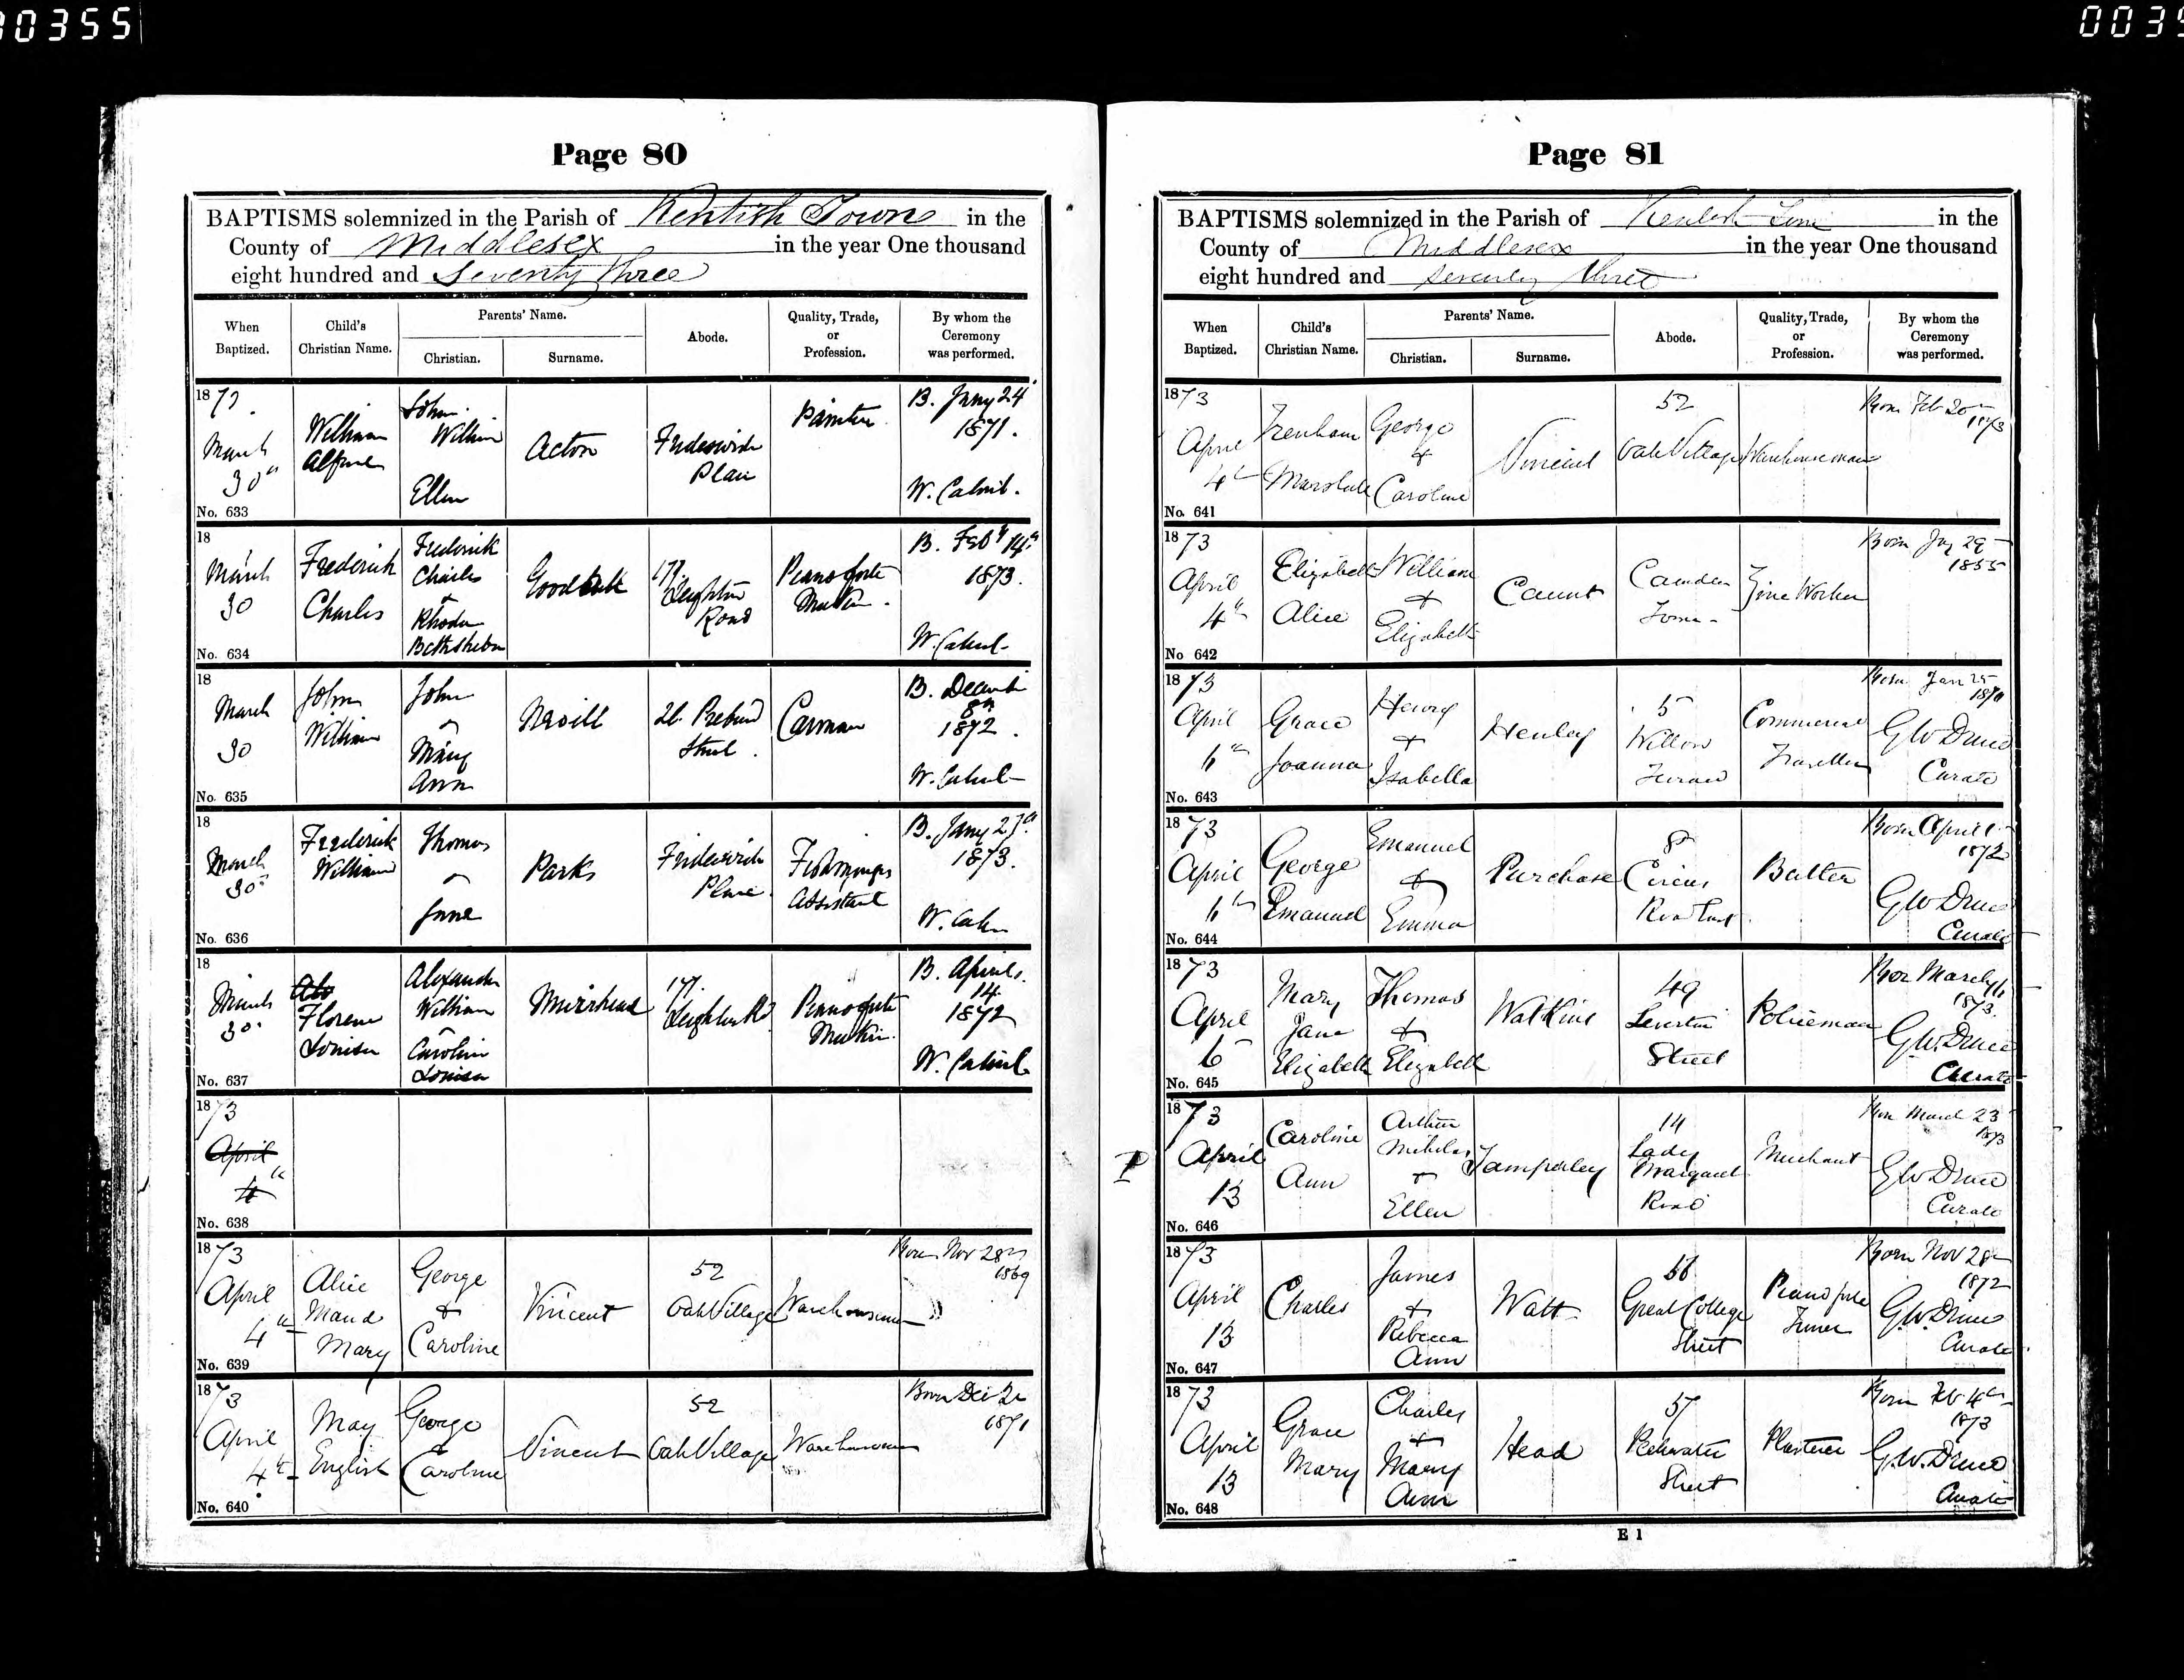 0355
003
Page 80
BAPTISMS solemnized in the Parish of Kentish Town in the
County of Middlesex in the year One thousand
eight hundred and Seventy three
When Baptized.
Child's Christian Name.
Parents' Name.
Christian.
Surname.
Abode.
Quality, Trade, or Profession.
By whom the Ceremony was performed.
1873. March 30th
William Alfred
John William Ellen
Acton
Frideswide Place
Painter
B. Jany 24 1871.
No. 633
18 March 30
Frederick Charles
Frederick Charles & Rhoda Bethsheba
171 Leighton Road
Pianoforte Maker.
B. Feby 14th 1873.
No. 634
18 March 30
John William
John & Mary Ann
Nevill
26. Prebend Street.
Carman
B. December 8th 1872.
No. 635
18 March 30
Frederick William
Thomas & Jane
Parks
Frideswide Place.
Assistant
B. Jany 1873.
No. 636
18 March 30
Florence Louisa
Alexander William & Caroline Louisa
Muirhead
171. Leighton Rd
Pianoforte Maker.
B. April 14 1872
No. 637
1873
April
4th
No. 638
1873 April 4th
Alice Maud Mary
George & Caroline
Vincent
52 Oak Village
Warehouseman
Born Nov 28th 1869
No. 639
1873 April 4th
May English
George & Caroline
Vincent
52 Oak Village
Warehouseman
Born Dec 1871
No. 640
Page 81
BAPTISMS solemnized in the Parish of Kentish Town in the
County of Middlesex in the year One thousand
eight hundred and seventy three
When Baptized.
Child's Christian Name.
Parents' Name.
Christian.
Surname.
Abode.
Quality, Trade, or Profession.
By whom the Ceremony was performed.
1873 April 4th
George & Caroline
Vincent
52 Oak Village
Warehouseman
Born Feb 20th 1873
No. 641
1873 April 4th
Elizabeth Alice
William & Elizabeth
Caunt
Camden Town
Zinc Worker
Born 29 1855
No 642
1873 April 6th
Grace Joanna
Henry & Isabella
Henley
5 Willow Terrace
Commercial Traveller
Born Jan 25
G W Druce Curate
No. 643
1873 April 6th
George Emanuel
Emanuel & Emma
Purchase
8 Circus Road East
Butler
Born April 1872
G W Druce Curate
No. 644
1873 April 6
Mary Jane Elizabeth
Thomas & Elizabeth
Watkins
49 Leverton Street
Policeman
Born March 1873.
G.W. Druce Curate
No. 645
1873 April 13
Caroline Ann
Arthur Nicholas & Ellen
Tamperley
14 Lady Margaret Road
Merchant
Born March 23 1873
G W Druce Curate
No. 646
1873 April 13
Charles
James & Rebecca Ann
Watt
Great College Street
Piano forte Tuner
Born Nov 28th 1872
G.W. Druce Curate
No. 647
1873 April 13
Grace Mary
Charles & Mary Ann
Head
57 Street
Plasterer
Born Feb 4th 1873
G.W. Druce Curate
No. 648
E 1